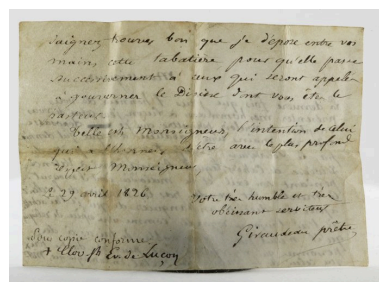 Daignez trouver bon que je dépose entre vos
mains, cette tabatière pour qu'elle passe
successivement à ceux qui seront appelés
à gouverner le Diocèse dont vous êtes le
pasteur.
Telle est, Monseigneur, l'intention de celui
qui a l'honneur d'être avec le plus profond
respect Monseigneur,
29 avril 1826
Votre très humble et très
obéissant serviteur
Giraudeau prêtre
Pour copie conforme
+ Ev. de Luçon